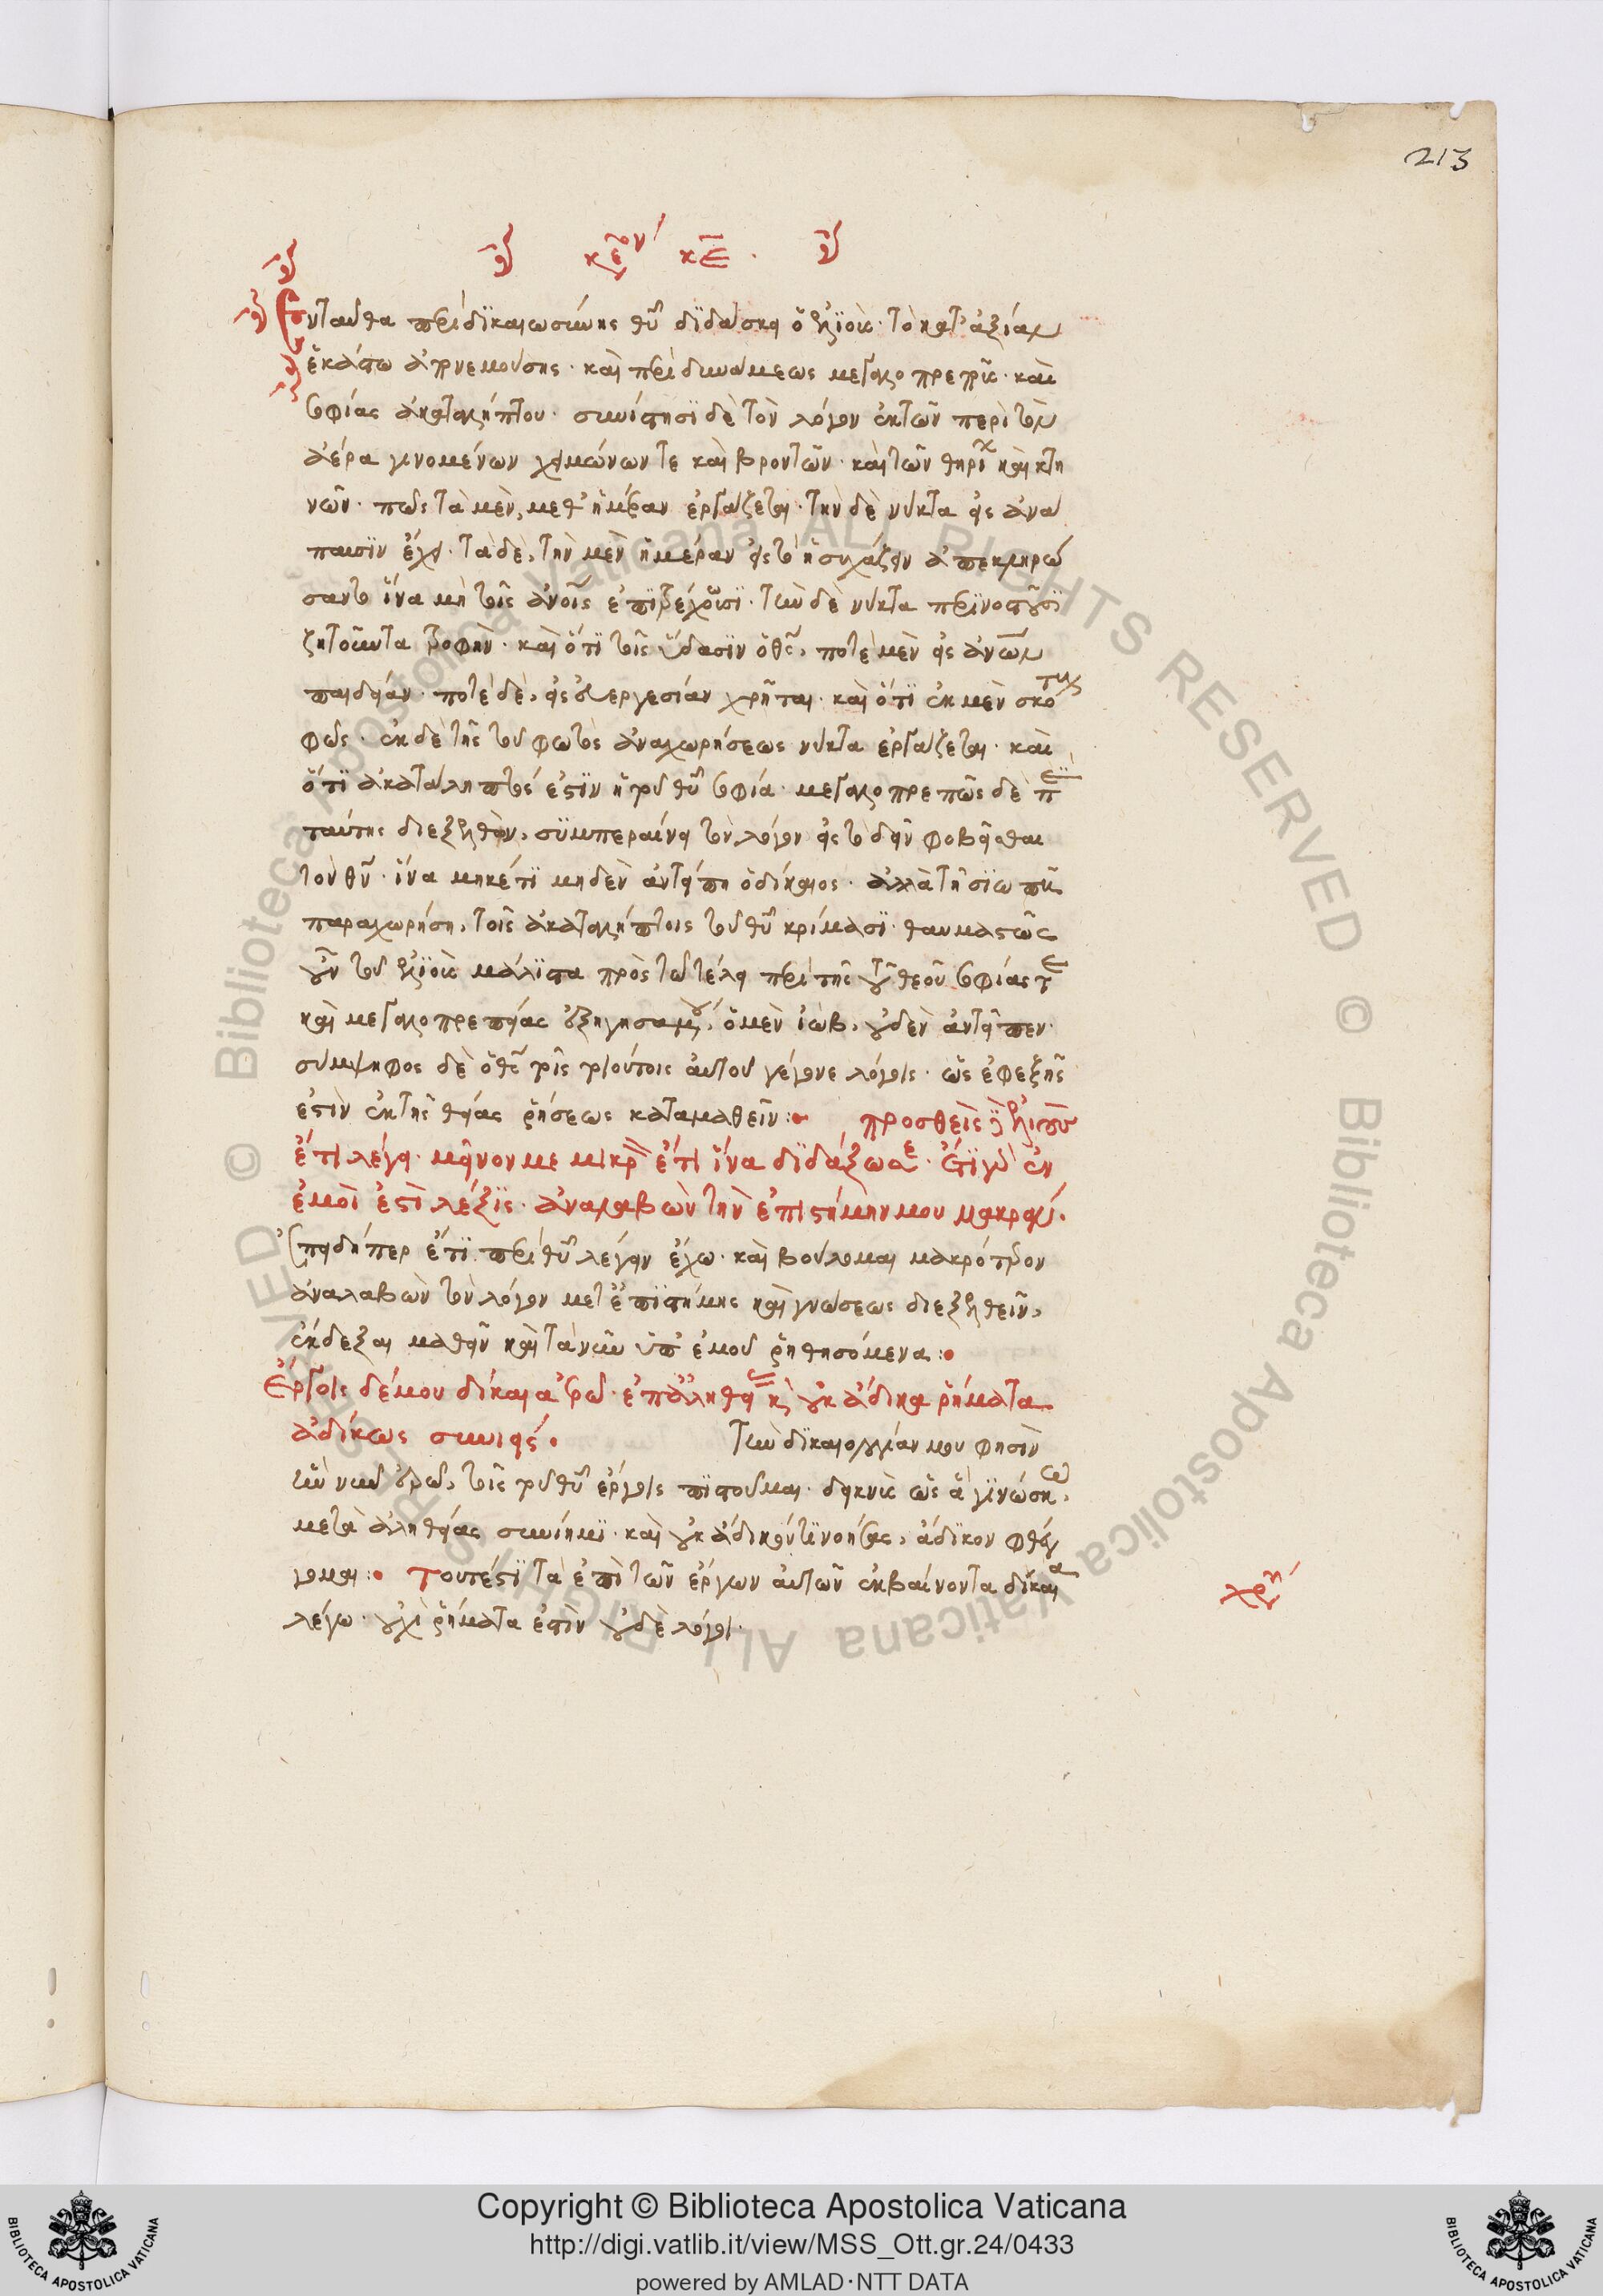 213
κε ον κε.
Ενταῦθα περὶ δικαιωσύνης θυ διδάσκει ὁ ἐλιοὺς· τὸ κατ' ἀξίαν
ἑκάστω ἀπονεμούσης· καὶ περὶ δυνάμεως μεγαλοπρεποῦς· καὶ
σοφίας ἀκαταλήπτου· συνίστησι δὲ τὸν λόγον ἐκ τῶν περὶ τὸν
ἀέρα γινομένων χειμώνων τε καὶ βροντῶν· καὶ τῶν θηρί καὶ κτη
νῶν· πῶς τὰ μὲν, μεθ' ἡμέραν ἐργάζεται· τὴν δὲ νύκτα εἰς ἀνά
παυσιν ἔχει· τὰ δὲ, τὴν μὲν ἡμέραν εἰς τὸ ἡσυχάζειν ἀπεκληρώ
σαντο ἵνα μὴ τοῖς ἀνοις ἐπιτρέχουσι· τὴν δὲ νύκτα περινοστοῦσι
ζητοῦντα τροφὴν· καὶ ὅτι τοῖς ὕδασιν ὁ θς, ποτὲ μὲν εἰς ἀνῶν
παιδείαν· ποτὲ δὲ, εἰς εὐεργεσίαν χρῆται· καὶ ὅτι ἐκ μὲν σκότους
φῶς· ἐκ δὲ τῆς τοῦ φωτὸς ἀναχωρήσεως νύκτα ἐργάζεται· καὶ
ὅτι ἀκατάληπτός ἐστιν ἡ τοῦ θυ σοφία· μεγαλοπρεπῶς δὲ π
ταύτης διεξελθὼν, συμπεραίνει τὸν λόγον εἰς τὸ δεῖν φοβεῖσθαι
τὸν θν· ἵνα μηκέτι μηδὲν ἀντείπη ὁ δίκαιος· ἀλλὰ τῆ σιωπῆ
παραχωρήση, τοῖς ἀκαταλήπτοις τοῦ θυ κρίμασι· θαυμαστῶς
οὖν τοῦ ἐλιοὺς μάλιστα πρὸς τῶ τέλει περὶ τῆς τοῦ θεοῦ σοφίας τ
καὶ μεγαλοπρεπείας ἐξηγησαμου, ὁ μὲν ἰὼβ, οὐδὲν ἀντεῖπεν·
σύμψηφος δὲ ὁ θς τοῖς τοιούτοις αὐτοῦ γέγονε λόγοις· ὡς ἐφεξῆς
ἐστιν ἐκ τῆς θείας ῥήσεως καταμαθεῖν: προσθεὶς ἐλιοῦς
ἔτι λέγει· μεῖνόν με μικρ ἔτι ἵνα διδάξω σε· ἔτι γὰρ ἐν
ἐμοὶ ἐστὶ λέξις· ἀναλαβὼν τὴν ἐπιστήμην μου μακράν.
Επειδήπερ ἔτι περὶ θυ λέγειν ἔχω· καὶ βούλομαι μακρότερον
ἀναλαβὼν τὸν λόγον μετ' ἐπιστήμης καὶ γνώσεως διεξελθεῖν,
ἔκδεξαι μαθεῖν καὶ τὰ νῦν ὑπ' ἐμοῦ ῥηθησόμενα:
Ἔργοις δέ μου δίκαια ἐρῶ· ἐπ' ἀληθείας κ οὐκ ἄδικα ῥήματα
ἀδίκως συνιεῖς. Τὴν δικαιολογίαν μου φησὶν
ἣν νῦν ἐρῶ, τοῖς τοῦ θυ ἔργοις πιστοῦμαι· δεικνὺς ὡς ἃ γινώσκω,
μετὰ ἀληθείας συνίημι· καὶ οὐκ ἄδικόν τι νοήσας, ἄδικον φθέγ
γομαι: Τουτέστι τὰ ἐπὶ τῶν ἔργων αὐτῶν ἐκβαίνοντα δίκαια
λέγω· οὐχὶ ῥήματα ἐστὶν οὐδὲ λόγοι·
Copyright © Biblioteca Apostolica Vaticana
http://digi.vatlib.it/view/MSS_Ott.gr.24/0433
powered by AMLAD·NTT DATA